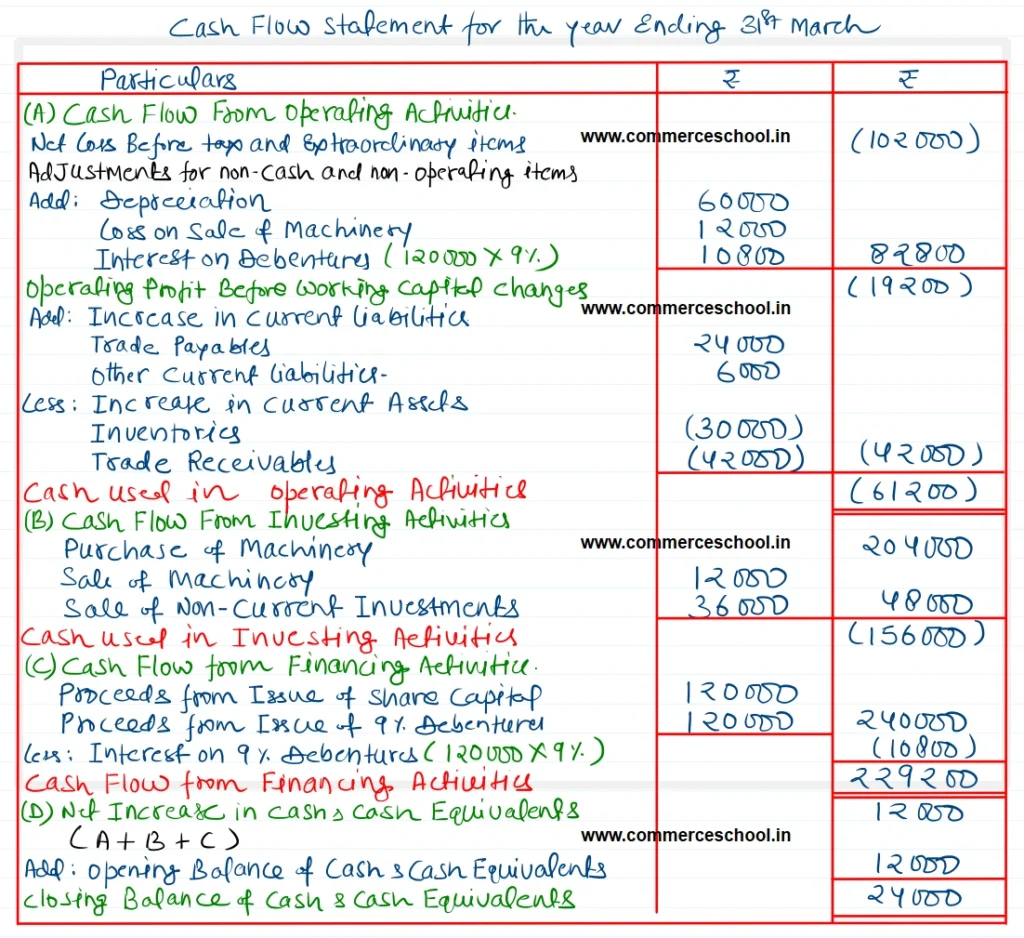 Cash Flow Statement for the year Ending 31st March
Particulars ₹ ₹
(A) Cash Flow From Operating Activities.
Net Loss Before tax and Extraordinary items www.commerceschool.in (102000)
Adjustments for non-cash and non-operating items
Add: Depreciation 60000
Loss on Sale of Machinery 12000
Interest on Debentures (120000 X 9%) 10800 82800
Operating Profit Before Working Capital Changes (19200)
Add: Increase in Current Liabilities www.commerceschool.in
Trade Payables 24000
Other Current Liabilities- 6000
Less: Increase in Current Assets
Inventories (30000)
Trade Receivables (42000) (42000)
Cash used in Operating Activities (61200)
(B) Cash Flow From Investing Activities
Purchase of Machinery www.commerceschool.in 204000
Sale of Machinery 12000
Sale of Non-Current Investments 36000 48000
Cash used in Investing Activities (156000)
(C) Cash Flow from Financing Activities.
Proceeds from Issue of Share Capital 120000
Proceeds from Issue of 9% Debentures 120000 240000
Less: Interest on 9% Debentures (120000 X 9%) (10800)
Cash Flow from Financing Activities 229200
(D) Net Increase in Cash & Cash Equivalents 12000
(A + B + C) www.commerceschool.in
Add: Opening Balance of Cash & Cash Equivalents 12000
Closing Balance of Cash & Cash Equivalents 24000